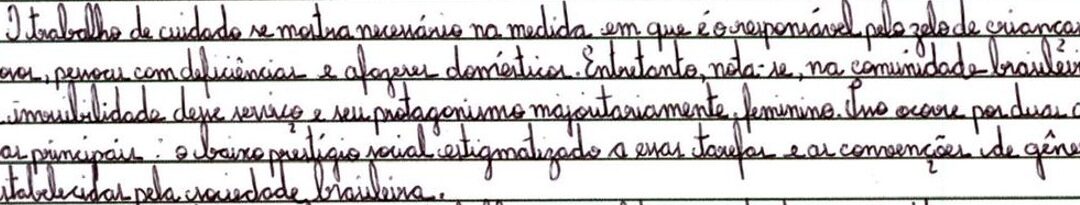 O trabalho de cuidado se mostra necessário na medida em que é o responsável pelo zelo de crianças
, pessoas com deficiências e afazeres domésticos. Entretanto, nota-se, na comunidade brasilei
invisibilidade desse serviço e seu protagonismo majoritariamente feminino. Isso ocorre por duas c
as principais: o baixo prestígio social estigmatizado a essas tarefas e as convenções de gêne
stabelecidas pela sociedade brasileira.